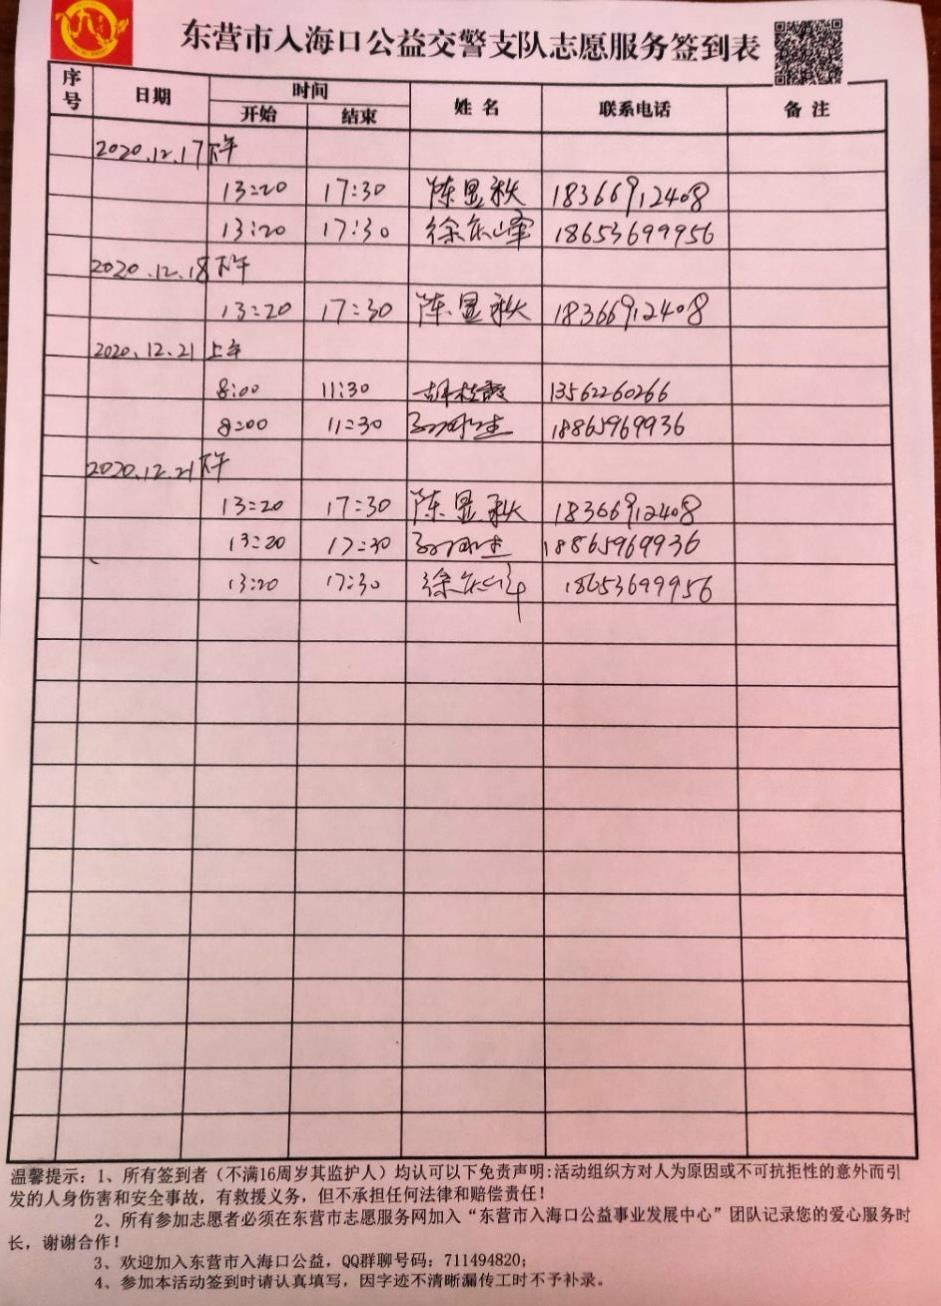 东营市入海口公益交警支队志愿服务签到表
序号 日期 时间 姓名 联系电话 备注
开始 结束
2020.12.17下午
13:20 17:30 陈显秋 18366912408
13:20 17:30 徐 峰 18653699956
2020.12.18下午
13:20 17:30 陈显秋 18366912408
2020.12.21上午
8:00 11:30 胡 霞 13562260266
8:00 11:30 18865969936
2020.12.21下午
13:20 17:30 陈显秋 18366912408
13:20 17:30 18865969936
13:20 17:30 徐 18653699956
温馨提示:1、所有签到者(不满16周岁其监护人)均认可以下免责声明:活动组织方对人为原因或不可抗拒性的意外而引
发的人身伤害和安全事故,有救援义务,但不承担任何法律和赔偿责任!
2、所有参加志愿者必须在东营市志愿服务网加入“东营市入海口公益事业发展中心”团队记录您的爱心服务时
长,谢谢合作!
3、欢迎加入东营市入海口公益,QQ群聊号码:711494820;
4、参加本活动签到时请认真填写,因字迹不清晰漏传工时不予补录。